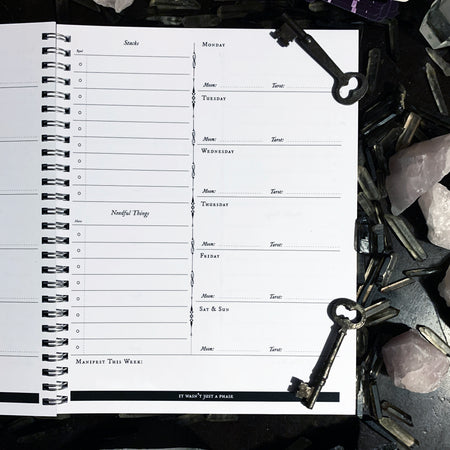 Stacks
Monday
Moon:
Tarot:
Tuesday
Moon:
Tarot:
Wednesday
Moon:
Tarot:
Thursday
Moon:
Tarot:
Needful Things
Friday
Moon:
Tarot:
Sat & Sun
Moon:
Tarot:
Manifest This Week:
IT WASN'T JUST A PHASE